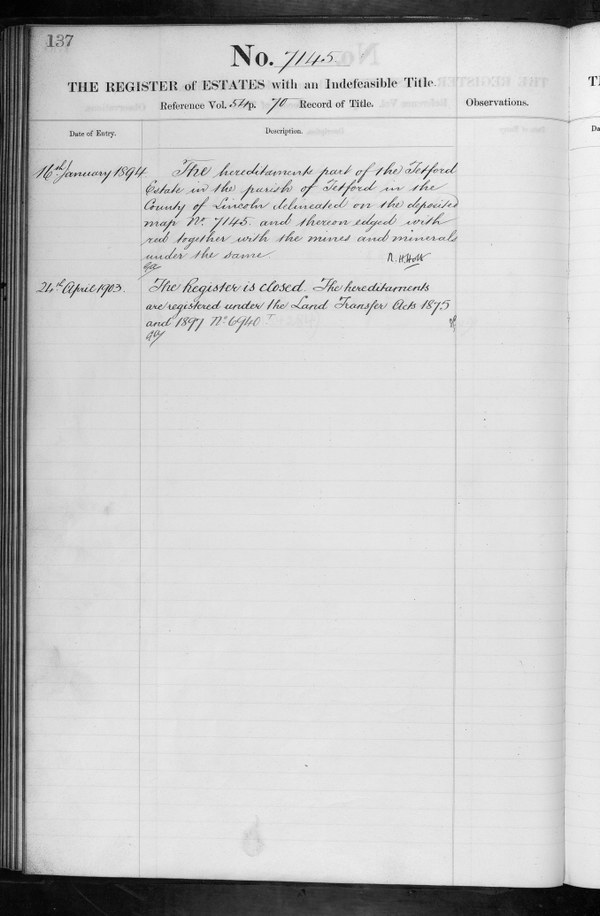 137
No. 7145
THE REGISTER of ESTATES with an Indefeasible Title.
Reference Vol. 54 p. 70 Record of Title.
Observations.
Date of Entry.
Description.
16th January 1894
The hereditaments part of the Tetford
Estate in the parish of Tetford in the
County of Lincoln delineated on the deposited
map No. 7145. and thereon edged with
red together with the mines and minerals
under the same
R. H. Holt
24th April 1903.
The Register is closed. The hereditaments
are registered under the Land Transfer Acts 1875
and 1897 No 6940